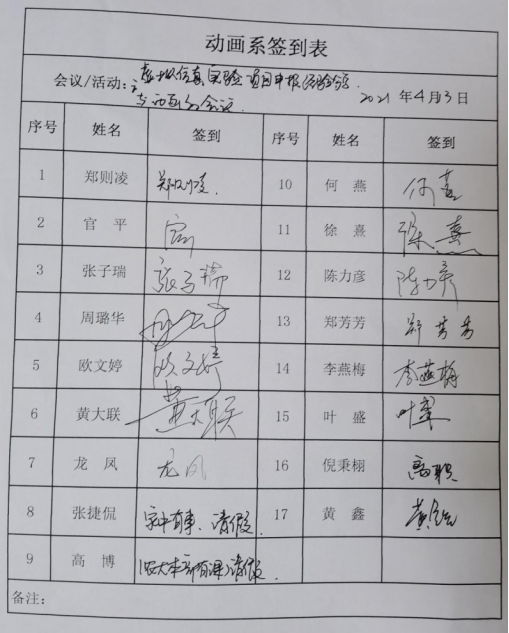 动画系签到表
会议/活动：虚拟仿真实验项目申报经验分享
会议 2021年4月3日
序号 姓名 签到 序号 姓名 签到
1 郑则凌 郑则凌 10 何燕 何燕
2 官平 官 11 徐熹 徐熹
3 张子瑞 张子瑞 12 陈力彦 陈力彦
4 周璐华 13 郑芳芳 郑芳芳
5 欧文婷 欧文婷 14 李燕梅 李燕梅
6 黄大联 黄大联 15 叶盛 叶盛
7 龙凤 龙凤 16 倪秉栩 离职
8 张捷侃 家中有事、请假。 17 黄鑫 黄鑫
9 高博 (农大本部有课)请假。
备注：